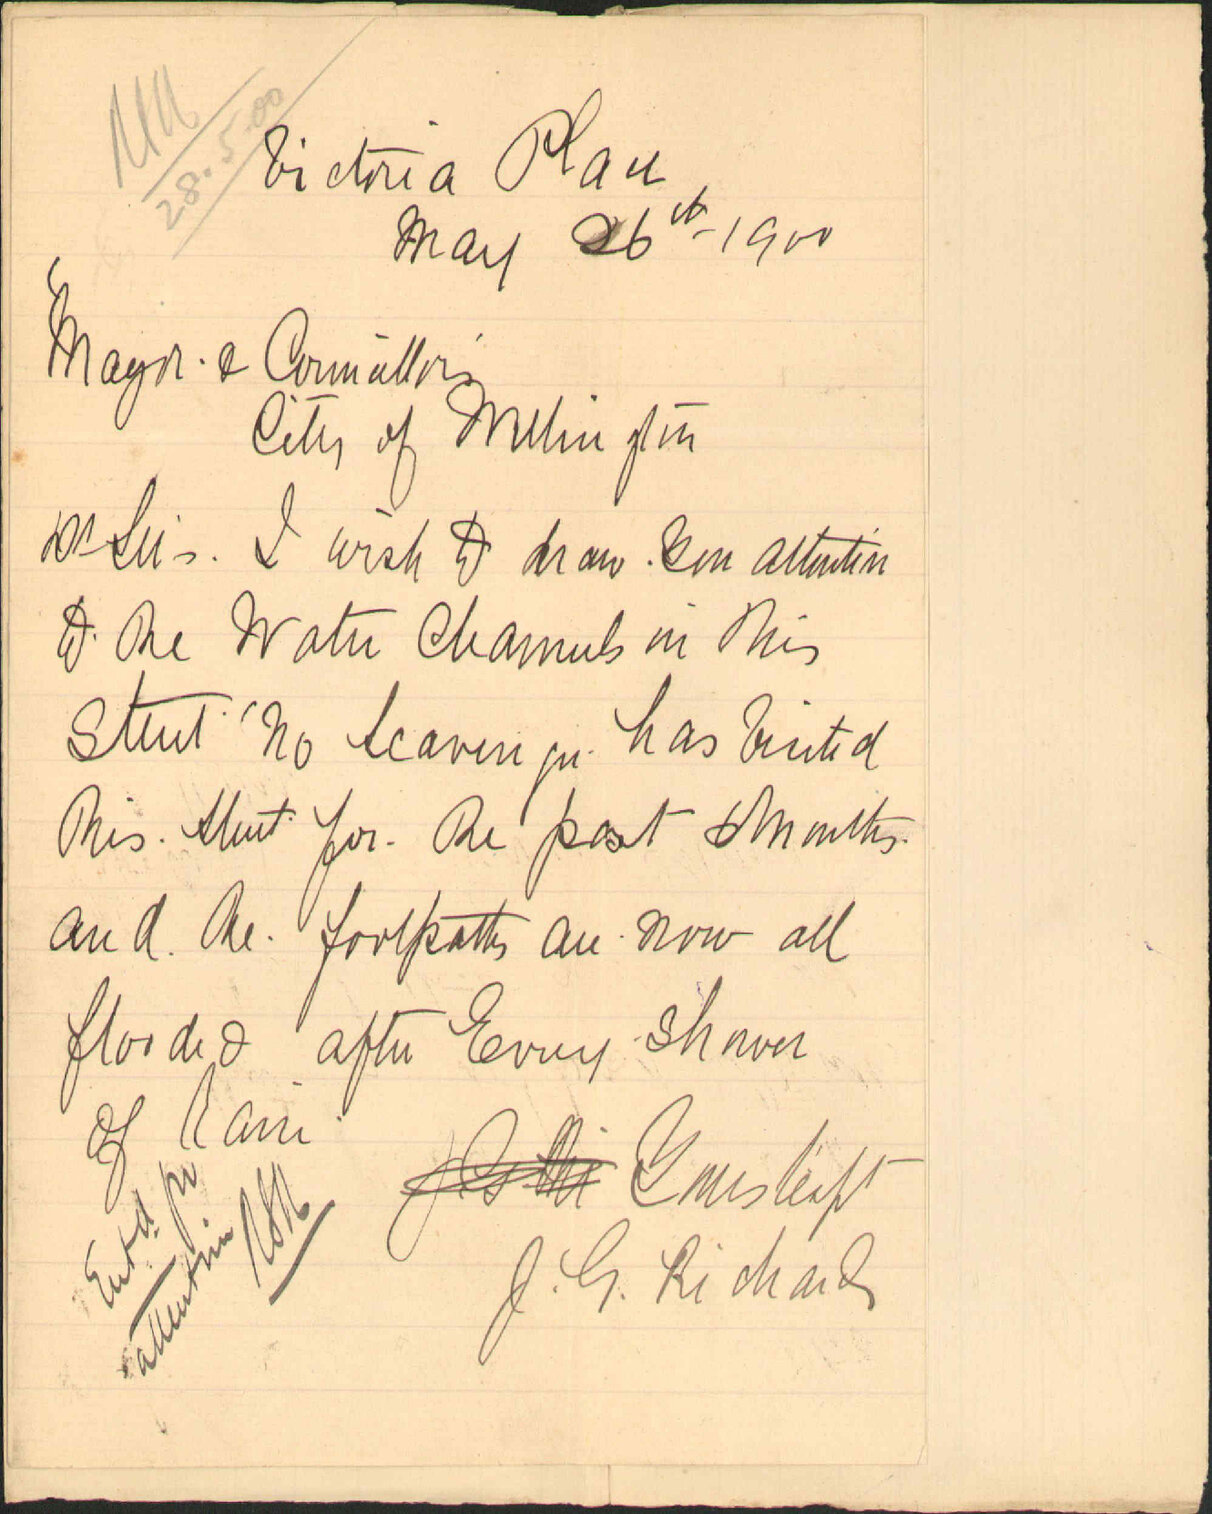 28.5.00
Victoria Place
May 26th - 1900
Mayor & Councillors
City of Wellington
Dr Sirs. I wish to draw you attention
to the Water Channels in this
Street No Scavenger has visited
this street for the past months
and the footpaths are now all
flooded after Every Shower
of Rain
Yours truly
J. G. Richards
Entd. for
attention